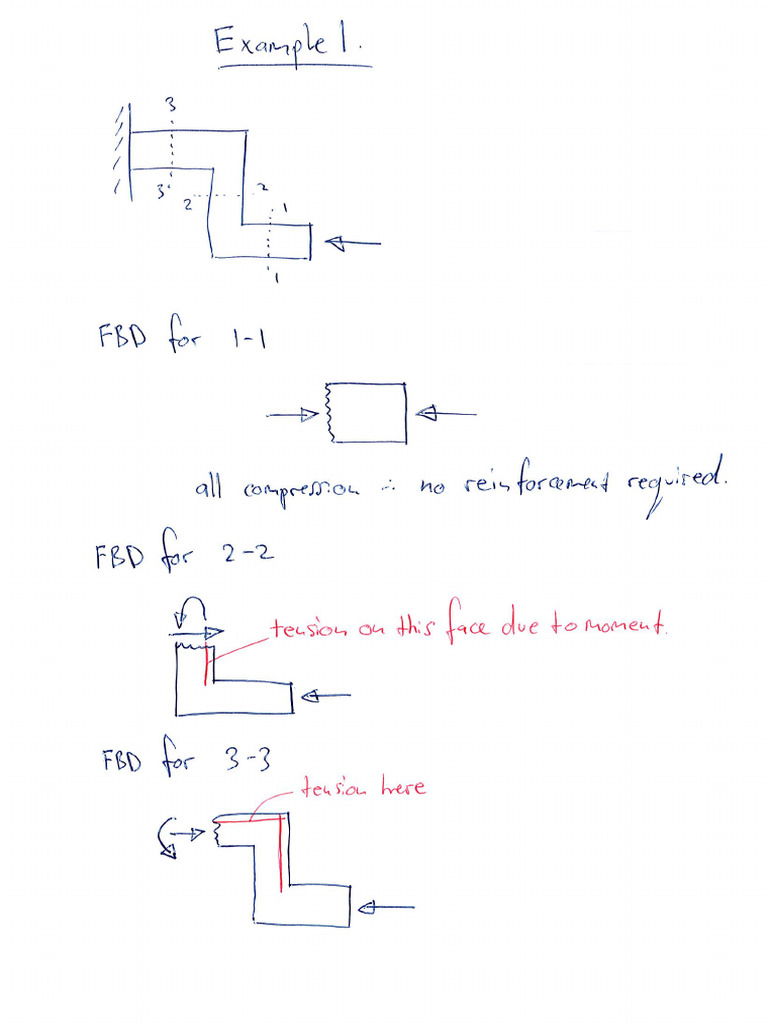 Example 1.
3
3
2
2
1
1
FBD for 1-1
all compression ∴ no reinforcement required.
FBD for 2-2
tension on this face due to moment.
FBD for 3-3
tension here